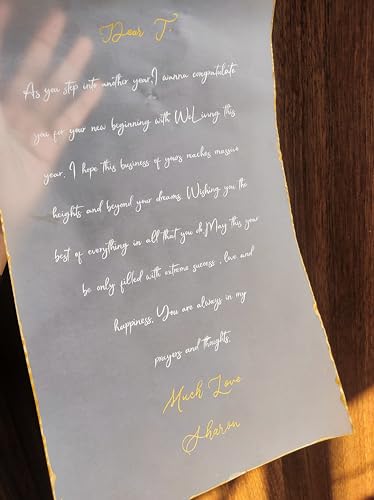 Dear T.
As you step into another year,I wanna congratulate
you for your new beginning with WeLiving this
year. I hope this business of yours reaches massive
heights and beyond your dreams. Wishing you the
best of everything in all that you do.May this year
be only filled with extreme success , love and
happiness. You are always in my
prayers and thoughts.
Much Love
Sharon